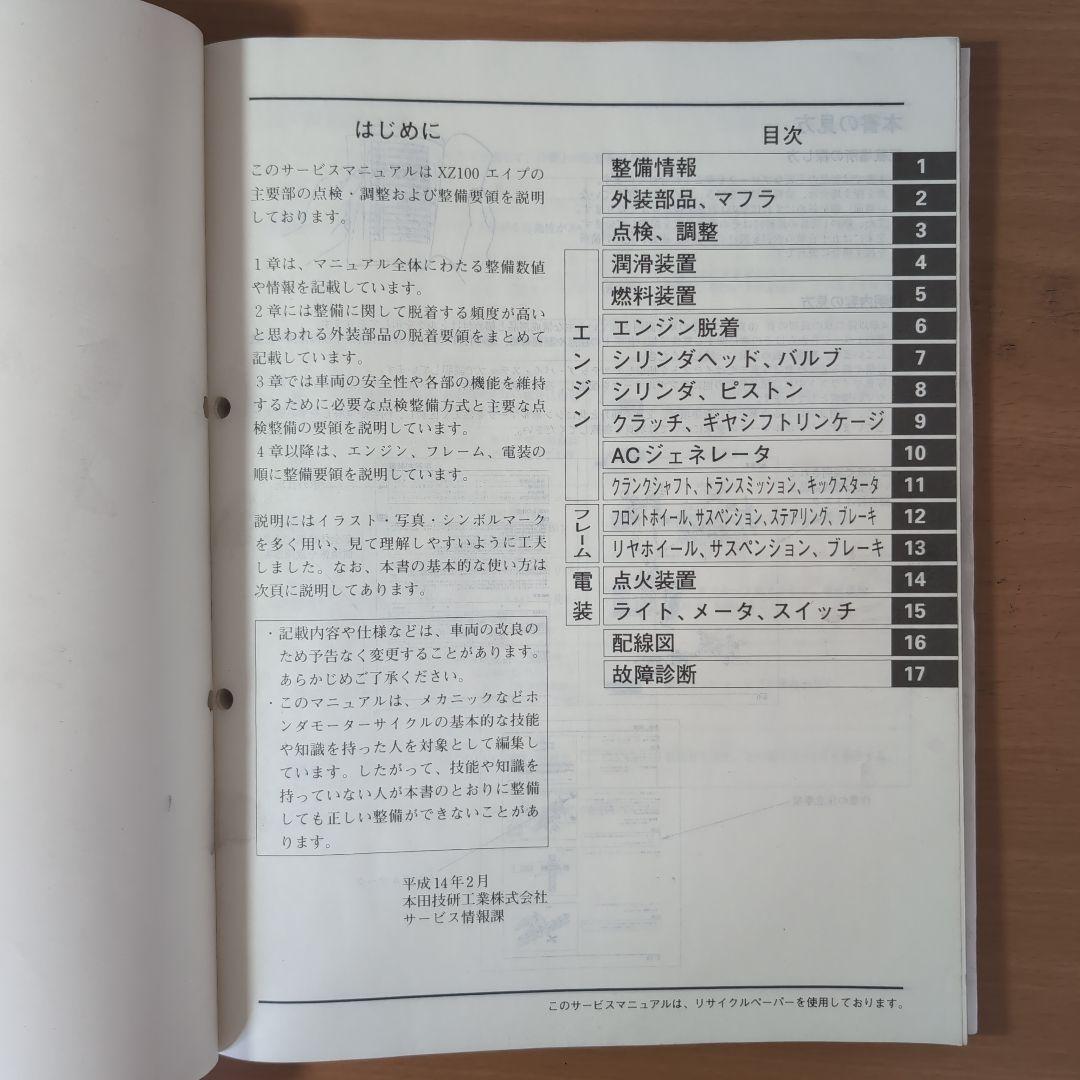 はじめに
このサービスマニュアルは XZ100 エイプの
主要部の点検・調整および整備要領を説明
しております。
1章は、マニュアル全体にわたる整備数値
や情報を記載しています。
2章には整備に関して脱着する頻度が高い
と思われる外装部品の脱着要領をまとめて
記載しています。
3章では車両の安全性や各部の機能を維持
するために必要な点検整備方式と主要な点
検整備の要領を説明しています。
4章以降は、エンジン、フレーム、電装の
順に整備要領を説明しています。
説明にはイラスト・写真・シンボルマーク
を多く用い、見て理解しやすいように工夫
しました。なお、本書の基本的な使い方は
次頁に説明してあります。
・記載内容や仕様などは、車両の改良の
ため予告なく変更することがあります。
あらかじめご了承ください。
・このマニュアルは、メカニックなどホ
ンダモーターサイクルの基本的な技能
や知識を持った人を対象として編集し
ています。したがって、技能や知識を
持っていない人が本書のとおりに整備
しても正しい整備ができないことがあ
ります。
平成14年2月
本田技研工業株式会社
サービス情報課
目次
整備情報 1
外装部品、マフラ 2
点検、調整 3
エンジン
潤滑装置 4
燃料装置 5
エンジン脱着 6
シリンダヘッド、バルブ 7
シリンダ、ピストン 8
クラッチ、ギヤシフトリンケージ 9
ACジェネレータ 10
クランクシャフト、トランスミッション、キックスタータ 11
フレーム
フロントホイール、サスペンション、ステアリング、ブレーキ 12
リヤホイール、サスペンション、ブレーキ 13
電装
点火装置 14
ライト、メータ、スイッチ 15
配線図 16
故障診断 17
このサービスマニュアルは、リサイクルペーパーを使用しております。